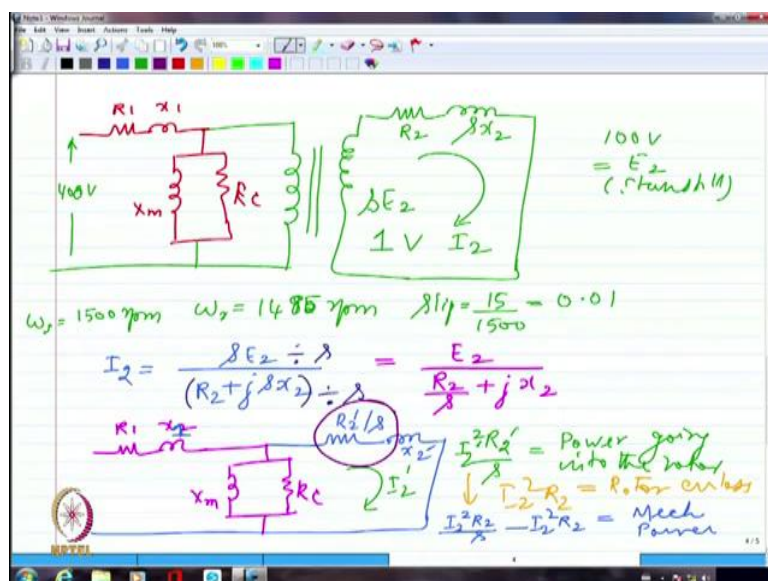 Note1 - Windows Journal
File Edit View Insert Actions Tools Help
100%
R1 x1
R2 sx2
100 V
= E2
(Standstill)
400V
Xm
Rc
sE2
1 V I2
ωs = 1500 rpm ωr = 1485 rpm Slip = 15/1500 = 0.01
I2 = sE2 ÷ s / (R2 + j sx2) ÷ s = E2 / (R2/s + j x2)
R1
R2'/s
x2'
Xm
Rc
I2'
I2² R2'/s = Power going into the rotor
I2² R2 = Rotor cu loss
I2² R2/s - I2² R2 = Mech Power
NPTEL
4/5